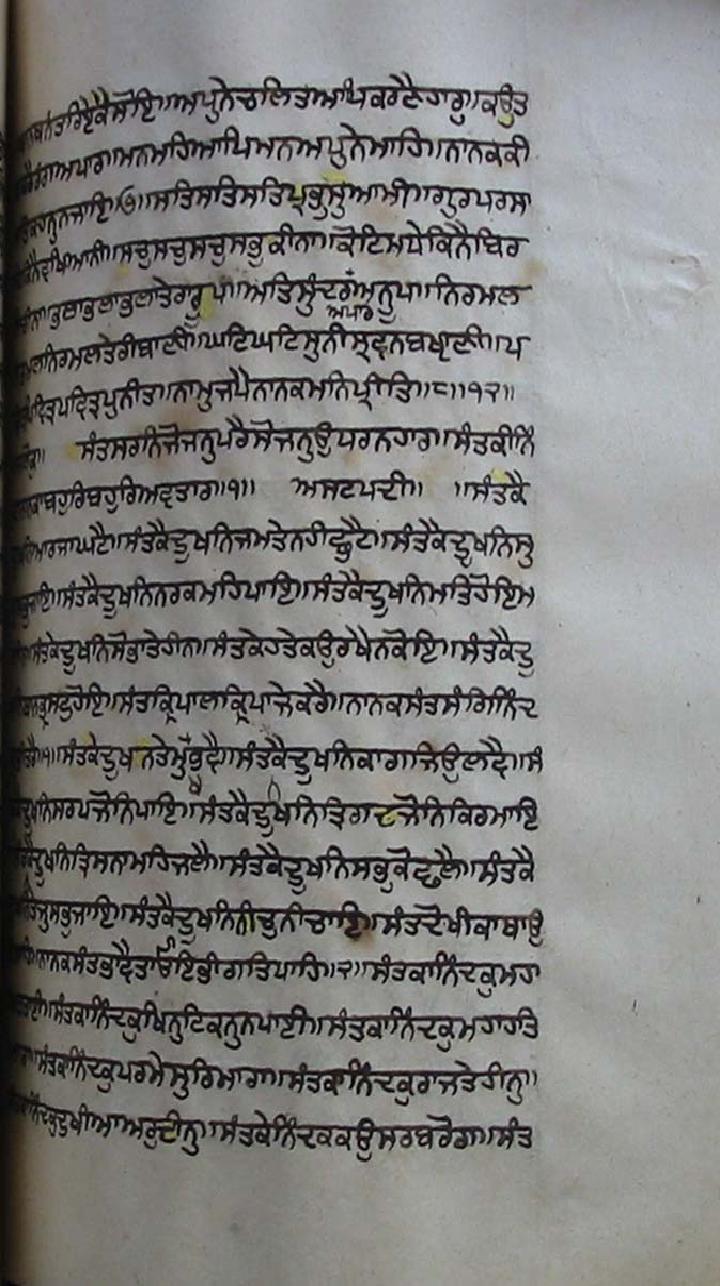 ਰਿਏਕੈਸੋਇ॥ਅਪੁਨੇਚਲਿਤਆਪਿਕਰਣੈਹਾਰੁ॥ਕਉਤ
ਰੰਗਅਪਾਰ॥ਮਨਮਹਿਆਪਿਮਨਅਪੁਨੇਮਾਹਿ॥ਨਾਨਕਕੀ
ਕਹਨੁਨਜਾਇ॥੭॥ਸਤਿਸਤਿਸਤਿਪ੍ਰਭੁਸੁਆਮੀ॥ਗੁਰਪਰਸਾ
ਕਿਨੈਵਖਿਆਨੀ॥ਸਚੁਸਚੁਸਚੁਸਭੁਕੀਨਾ॥ਕੋਟਿਮਧੇਕਿਨੈਬਿਰ
ਭਲਾਭਲਾਭਲਾਤੇਰਾਰੂਪ॥ਅਤਿਸੁੰਦਰਅਨੂਪ॥ਨਿਰਮਲ
ਅਪਾਰ
ਨਿਰਮਲਤੇਰੀਬਾਣੀ॥ਘਟਿਘਟਿਸੁਨੀਸ੍ਰਵਨਬਖ੍ਯਾਣੀ॥ਪ
ਪਵਿਤ੍ਰਪਵਿਤ੍ਰਪੁਨੀਤ॥ਨਾਮੁਜਪੈਨਾਨਕਮਨਿਪ੍ਰੀਤਿ॥੮॥੧੨॥
ਸੰਤਸਰਨਿਜੋਜਨੁਪਰੈਸੋਜਨੁਉਧਰਨਹਾਰ॥ਸੰਤਕੀਨਿੰ
ਬਹੁਰਿਬਹੁਰਿਅਵਤਾਰ॥੧॥ ਅਸਟਪਦੀ॥ ॥ਸੰਤਕੈ
ਆਰਜਾਘਟੈ॥ਸੰਤਕੈਦੂਖਨਿਜਮਤੇਨਹੀਛੁਟੈ॥ਸੰਤਕੈਦੂਖਨਿਸੁ
ਜਾਇ॥ਸੰਤਕੈਦੂਖਨਿਨਰਕਮਹਿਪਾਇ॥ਸੰਤਕੈਦੂਖਨਿਮਤਿਹੋਇਮ
ਸੰਤਕੇਦੂਖਨਿਸੋਭਾਤੇਹੀਨ॥ਸੰਤਕੇਹਤੇਕਉਰਖੈਨਕੋਇ॥ਸੰਤਕੈਦੂ
ਭ੍ਰਸਟੁਹੋਇ॥ਸੰਤਕ੍ਰਿਪਾਲਕ੍ਰਿਪਾਜੇਕਰੈ॥ਨਾਨਕਸੰਤਸੰਗਿਨਿੰਦ
॥੧॥ਸੰਤਕੇਦੂਖਨਤੇਮੁਖੁਭਵੈ॥ਸੰਤਕੈਦੂਖਨਿਕਾਗਜਿਉਲਵੈ॥ਸੰ
ਦੂਖਨਿਸਰਪਜੋਨਿਪਾਇ॥ਸੰਤਕੈਦੂਖਨਿਤ੍ਰਿਗਦਜੋਨਿਕਿਰਮਾਇ
ਦੂਖਨਿਤ੍ਰਿਸਨਾਮਹਿਜਲੈ॥ਸੰਤਕੈਦੂਖਨਿਸਭੁਕੋਛਲੈ॥ਸੰਤਕੈ
ਤੇਜੁਸਭੁਜਾਇ॥ਸੰਤਕੈਦੂਖਨਿਨੀਚੁਨੀਚਾਇ॥ਸੰਤਦੋਖੀਕਾਥਾਉ
ਨਾਨਕਸੰਤਭਾਵੈਤਾਓਇਭੀਗਤਿਪਾਹਿ॥੨॥ਸੰਤਕਾਨਿੰਦਕੁਮਹਾ
ਸੰਤਕਾਨਿੰਦਕੁਖਿਨੁਟਿਕਨੁਨਪਾਈ॥ਸੰਤਕਾਨਿੰਦਕੁਮਹਾਹਤਿ
ਸੰਤਕਾਨਿੰਦਕੁਪਰਮੇਸੁਰਿਮਾਰਾ॥ਸੰਤਕਾਨਿੰਦਕੁਰਾਜਤੇਹੀਨੁ॥
ਨਿੰਦਕੁਦੁਖੀਆਅਰੁਦੀਨੁ॥ਸੰਤਕੇਨਿੰਦਕਕਉਸਰਬਰੋਗ॥ਸੰਤ